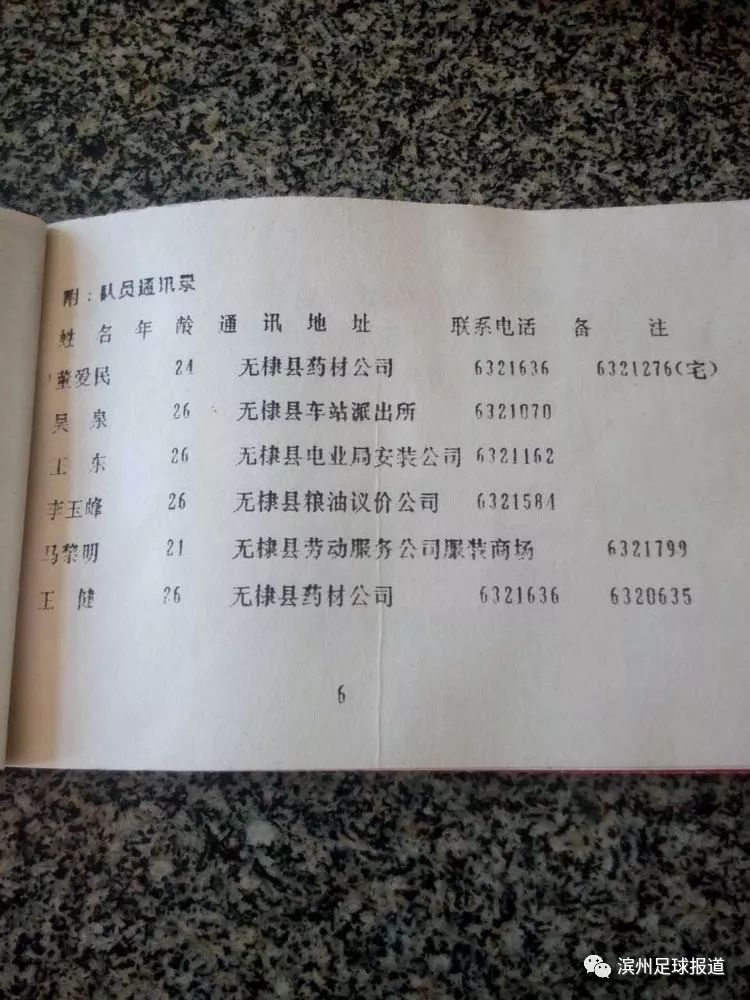 附：队员通讯录
姓 名 年 龄 通 讯 地 址 联系电话 备 注
董爱民 24 无棣县药材公司 6321636 6321276(宅)
吴 泉 26 无棣县车站派出所 6321070
王 东 26 无棣县电业局安装公司 6321162
李玉峰 26 无棣县粮油议价公司 6321584
马黎明 21 无棣县劳动服务公司服装商场 6321799
王 健 26 无棣县药材公司 6321636 6320635
6
滨州足球报道